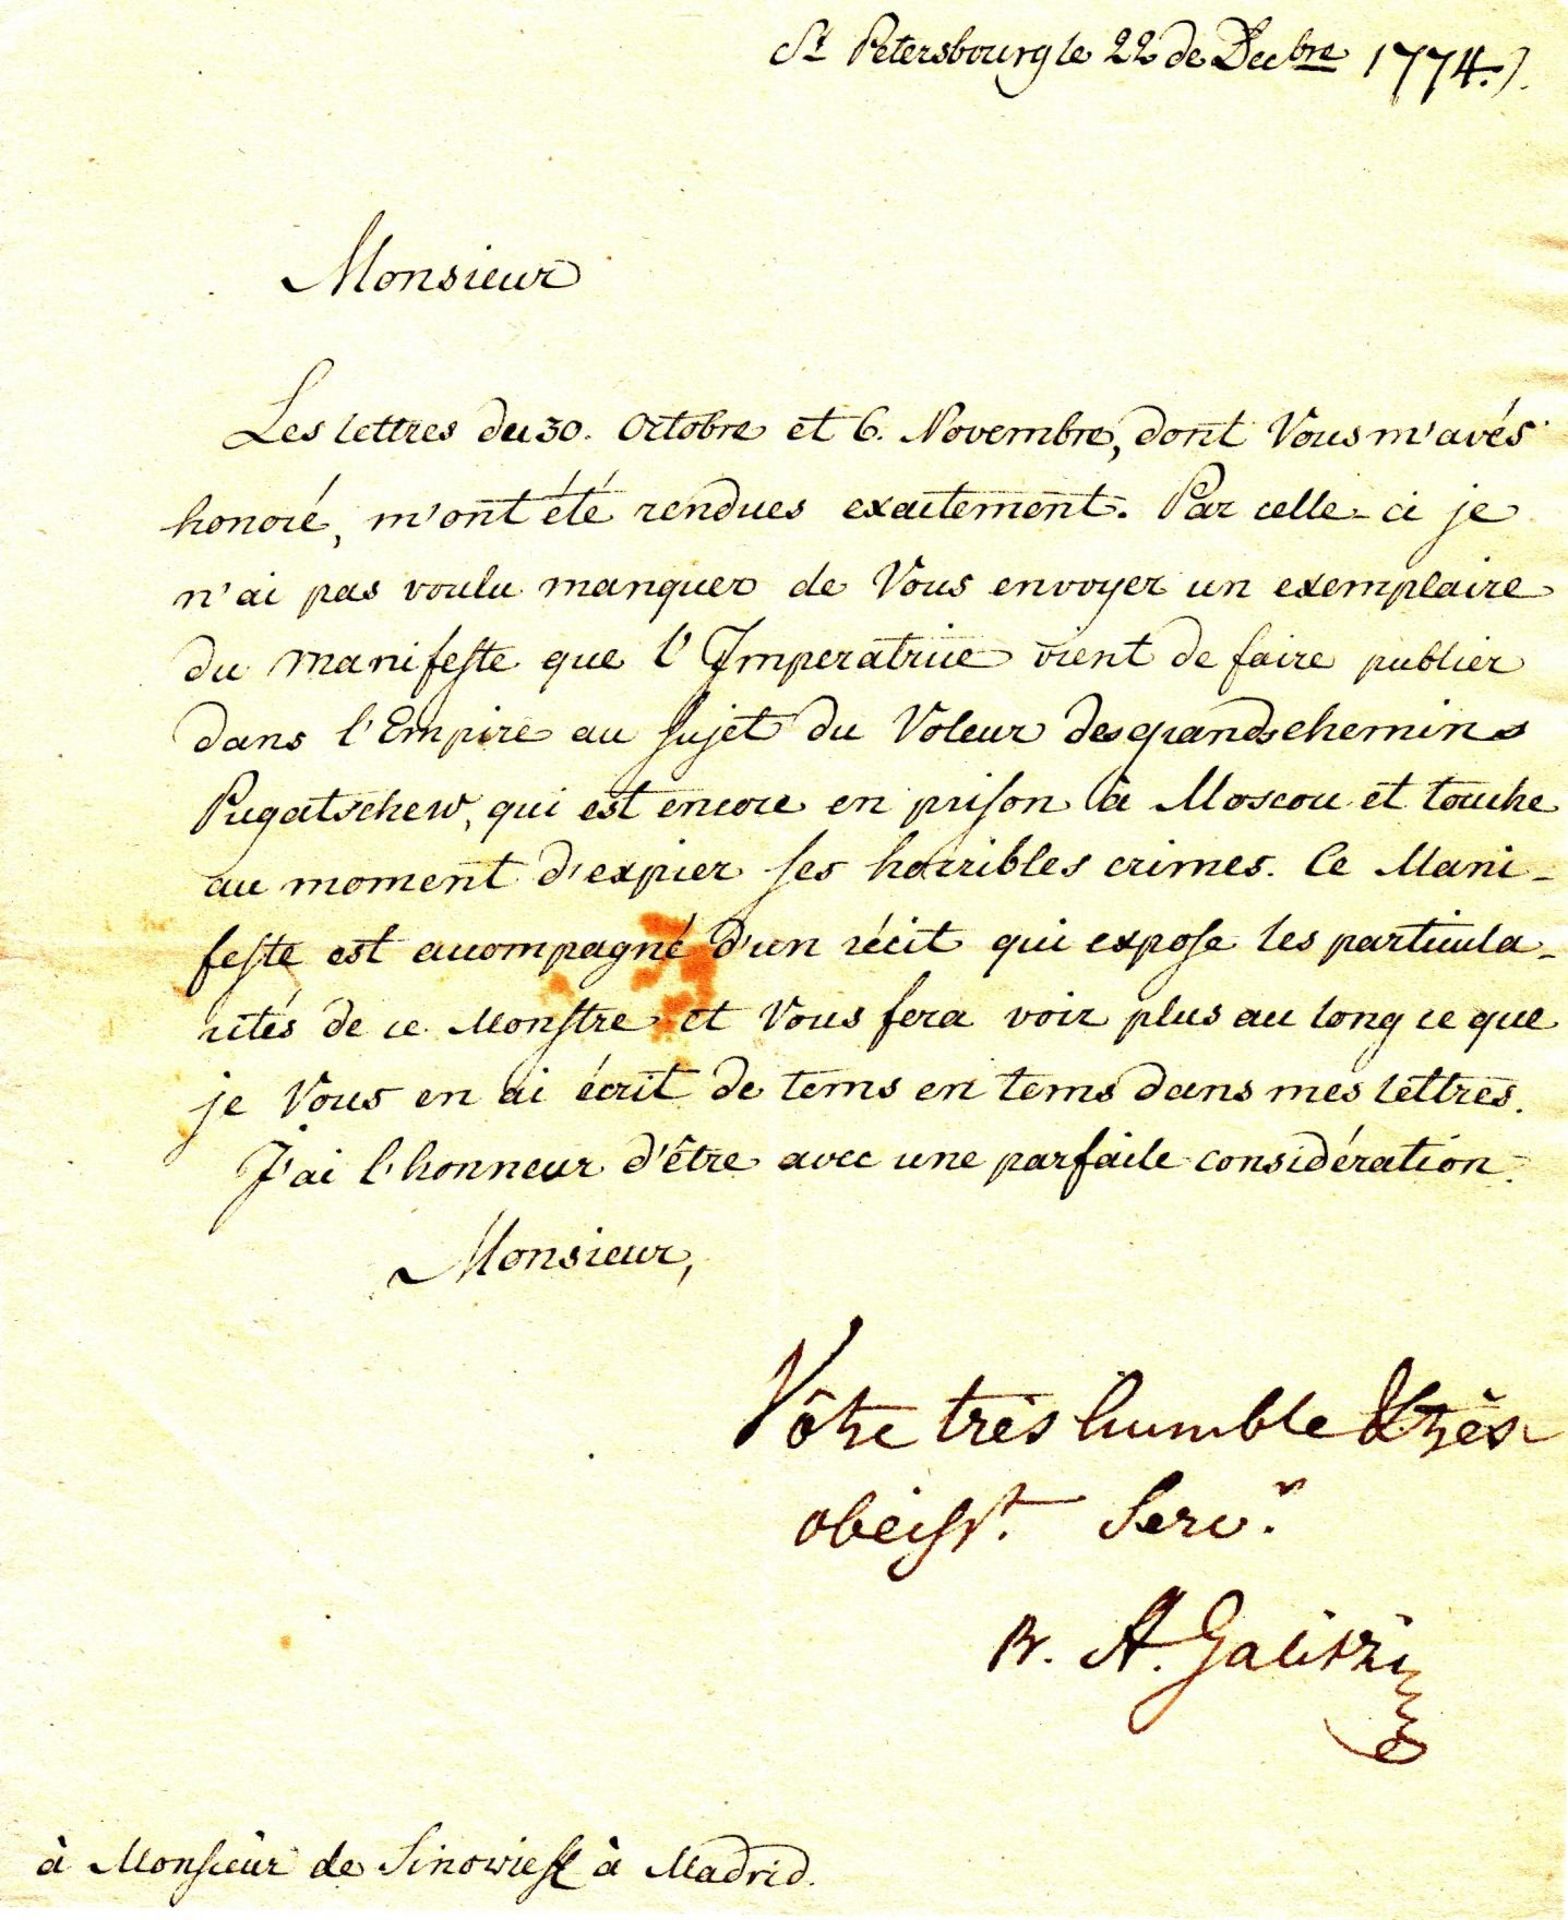 St Petersbourg le 22 de Decbre 1774.
Monsieur
Les lettres du 30. Octobre et 6. Novembre, dont Vous m'avés
honoré, m'ont été rendues exactement. Par celle-ci je
n'ai pas voulu manquer de Vous envoyer un exemplaire
du Manifeste que l'Imperatrice vient de faire publier
dans l'Empire au sujet du Voleur des grands chemins
Pugatschew, qui est encore en prison à Moscou et touche
au moment d'expier ses horribles crimes. Ce Mani-
feste est accompagné d'un récit qui expose les particula-
rités de ce Monstre et Vous fera voir plus au long ce que
je Vous en ai écrit de tems en tems dans mes lettres.
J'ai l'honneur d'être avec une parfaite considération.
Monsieur,
Vôtre très humble & très
obeisst. Servr.
Pr. A. Galitzi
à Monsieur de Sinowieff à Madrid.